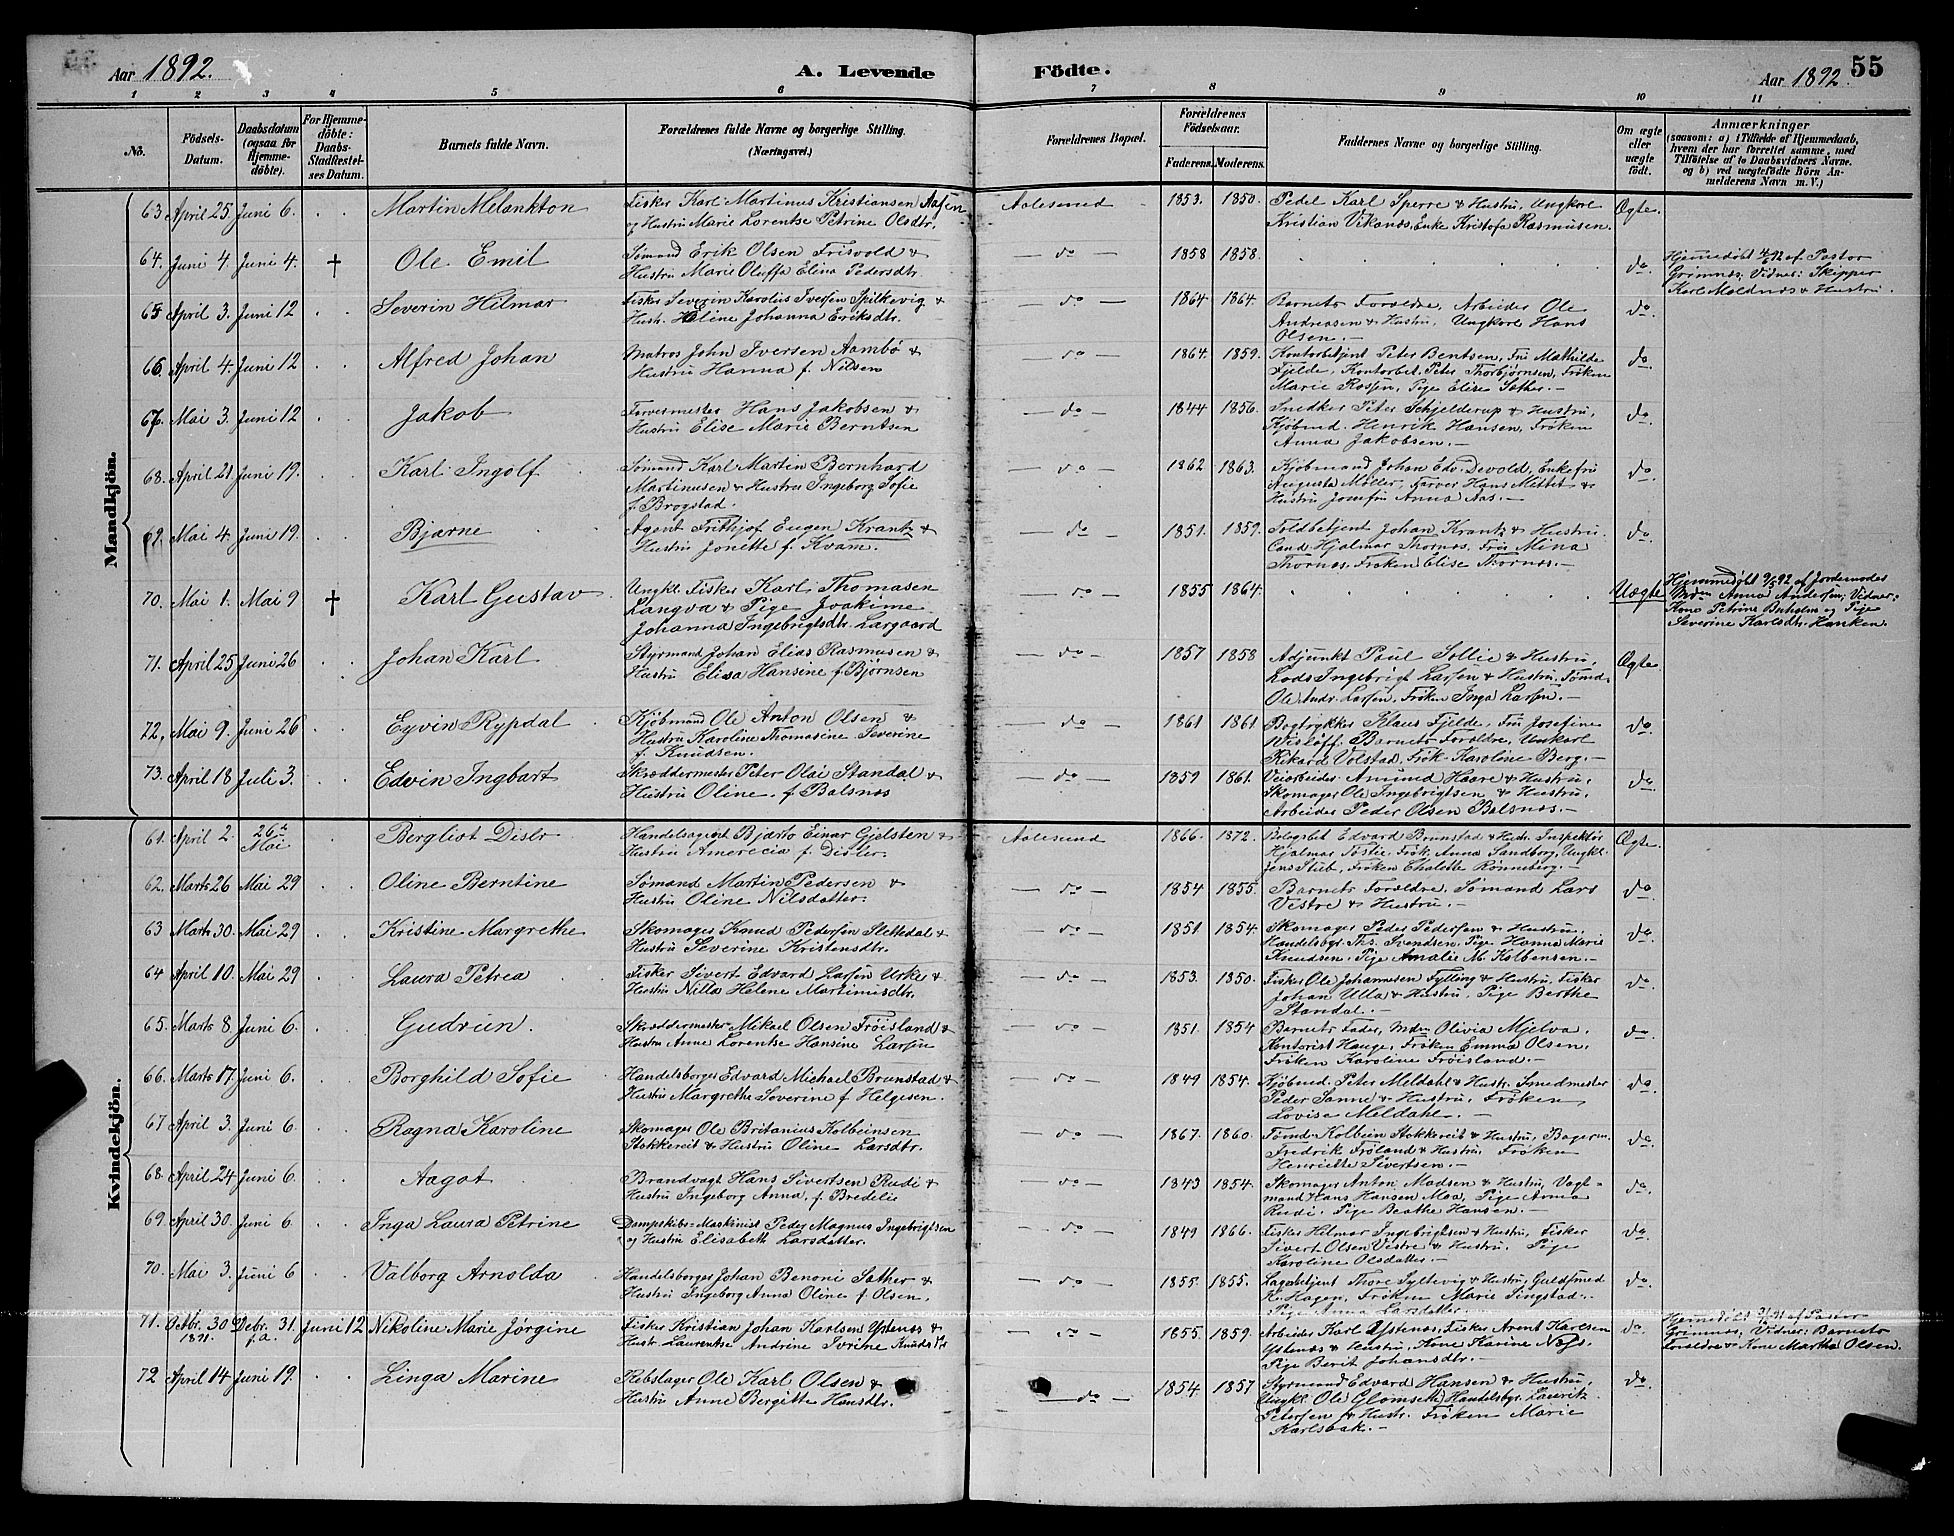 Aar 1892.
A. Levende Födte.
Aar 1892.
55
1 2 3 4 5 6 7 8 9 10 11
No.
Födsels-Datum.
Daabsdatum (ogsaa for Hjemme-döbte).
For Hjemme-döbte: Daabs-Stadfæstel-ses Datum.
Barnets fulde Navn.
Forældrenes fulde Navne og borgerlige Stilling. (Næringsvei.)
Forældrenes Bopæl.
Forældrenes Födselsaar.
Faderens. Moderens.
Faddernes Navne og borgerlige Stilling.
Om ægte eller uægte födt.
Anmærkninger
(saasom: a) i Tilfælde af Hjemmedaab, hvem der har forrettet samme, med Tilföielse af to Daabsvidners Navne. og b) ved uægtefödte Börn An-melderens Navn m. V.)
Mandkjön.
63. April 25 Juni 6. Martin Melankton Fisker Karl Martinus Kristiansen Aasen og Hustru Marie Lorentse Petrine Olsdtr. Aalesund 1853. 1850. Pedel Karl Sperre & Hustru, Ungkarl Kristian Vikanæs, Enke Kristofa Rasmusen. Ægte.
64. Juni 4. Juni 4. † Ole Emil Sømand Erik Olsen Frisvold & Hustru Marie Oluffa Elina Pedersdtr. do 1858 1858. do Hjemmedøbt 4/6 92 af Pastor Grimnæs; Vidner: Skipper Karl Moldnæs & Hustru.
65 April 3. Juni 12 Severin Hilmar Fisker Severin Karolius Iversen Spilkevig & Hustr. Heline Johanna Eriksdtr. do 1864 1864. Barnets Forældre, Arbeider Ole Andreasen & Hustru, Ungkarl Hans Olsen. do.
66 April 4. Juni 12 Alfred Johan Matros John Iversen Aambø & Hustru Hanna f. Nilsen do 1864. 1859. Kontorbetjent Peter Bentsen, Fru Mathilde Fjelde, Kontorbet. Peter Thorbjørnsen, Frøken Marie Rossen, Pige Elise Sæther. do
67. Mai 3. Juni 12 Jakob Farvermester Hans Jakobsen & Hustru Elise Marie Berntsen do 1844 1856. Snedker Peter Schjelderup & Hustru, Kjøbmd. Henrik Hansen, Frøken Anna Jakobsen. do
68. April 21 Juni 19. Karl Ingolf Sømand Karl Martin Bernhard Martinusen & Hustru Ingeborg Sofie f. Brogstad. do 1862 1863. Kjøbmand Johan Edv. Devold, Enkefru Augusta Møller, Farver Hans Mittet & Hustru Jomfru Anna Aas. do
69. Mai 4. Juni 19. Bjarne Agent Frithjof Eugen Krantz & Hustru Jonette f. Kvam. do 1851. 1859. Toldbetjent Johan Krantz & Hustru. Cand Hjalmar Thornæs, Fru Mina Thornæs, Frøken Elise Thornæs. do.
70. Mai 1. Mai 9 † Karl Gustav Ungkl. Fisker Karl Thomasen Langva & Pige Joakime Johanna Ingebrigtsdtr. Largaard do 1855 1864. Uægte Hjemmedøbt 9/5 92 af Jordemoder Mdm Anna Andersen; Vidner: Kone Petrine Buholm og Pige Severine Karlsdtr. Hanken.
71. April 25 Juni 26 Johan Karl Styrmand Johan Elias Rasmusen & Hustru Elisa Hansine f. Bjørnsen do 1857 1858 Adjunkt Paul Sollie & Hustru, Lods Ingebrigt Larsen & Hustru, Tømd. Ole Andr. Larsen, Frøken Inga Larsen. Ægte
72. Mai 9. Juni 26 Eyvin Rypdal Kjøbmand Ole Anton Olsen & Hustru Karoline Thomasine Severine f. Knudsen. do 1861 1861 Bogtrykker Klaus Fjelde, Fru Josefine Wisløff, Barnets Forældre, Unkarl Rikard Volstad, Frøk. Karoline Berg. do
73. April 18 Juli 3. Edvin Ingbart Skræddermester Peter Olai Standal & Hustru Oline f. Balsnæs do 1859 1861. Veiarbeider Amund Haare & Hustru, Skomager Ole Ingebrigtsen & Hustru, Arbeider Peder Olsen Balsnæs. do
Kvindekjön.
61. April 2 26de Mai Bergliot Disler Handelsagent Bjarto Einar Gjelsten & Hustru Amerecia f. Disler. Aalesund 1866. 1872. Edvard Brunstad & Hustr. Inspektør Hjalmar Tostie, Frøk. Anna Sandberg, Ungkl. Jens Stub, Frøken Chalette Rønneberg. Ægte.
62. Marts 26 Mai 29 Oline Berntine Sømand Martin Pedersen & Hustru Oline Nilsdatter. do 1854 1855. Barnets Forældre, Sømand Lars Vestre & Hustru. do
63 Marts 30. Mai 29 Kristine Margrethe Skomager Knud Pedersen Slettedal & Hustru Severine Kristensdtr. do 1851 1854. Skomager Peder Pedersen & Hustru, Handelsbgr. Ths. Svendsen, Pige Hanna Marie Knudsen, Pige Amalie M. Kolbensen. do
64 April 10. Mai 29 Laura Petrea Fisker Sivert Edvard Larsen Urke & Hustru Nilla Helene Martinusdtr. do 1853. 1850. Fisker Ole Johannesen Fylling & Hustru, Fisker Johan Ulla & Hustru, Pige Berthe Standal. do
65. Marts 8. Juni 6. Gudrun. Skræddermester Mikael Olsen Frøisland & Hustru Anne Lorentse Hansine Larsen do 1851. 1854 Barnets Fader, Mdm Olivia Mjelva, Kontorist Hauge, Frøken Emma Olsen, Frøken Karoline Frøisland. do
66. Marts 17. Juni 6. Borghild Sofie Handelsborger Edvard Michael Brunstad & Hustru Margrethe Severine f. Helgesen. do 1849 1854. Kjøbmd. Peter Meldahl & Hustr. Smedmester Peder Sanne & Hustru, Frøken Lovise Meldahl. do
67 April 3. Juni 6. Ragna Karoline Skomager Ole Britanius Kolbeinsen Stokkereit & Hustru Oline Larsdtr. do 1867. 1860. Tømd. Kolbein Stokkereit & Hustru, Bagerm. Fredrik Frøland & Hustru, Frøken Henriette Sivertsen. do
68. April 24 Juni 6. Aagot Brandvagt Hans Sivertsen Rudi & Hustru Ingeborg Anna f. Bredelie do 1843 1854. Skomager Anton Madsen & Hustru, Vagtmand Hans Hansen Moa, Pige Anna Rudi, Pige Beathe Hansen. do
69. April 30. Juni 6. Inga Laura Petrine Dampskibs-Maskinist Peder Magnus Ingebrigtsen og Hustru Elisabeth Larsdatter. do 1849 1866. Fisker Hilmar Ingebrigtsen & Hustru, Fisker Sivert Olsen Vestre & Hustru, Pige Karoline Olsdatter. do
70. Mai 3. Juni 6 Valborg Arnolda Handelsborger Johan Benoni Sather & Hustru Ingeborg Anna Oline f. Olsen. do 1855. 1855. Lagebetjent Thore Syltevig & Hustru, Guldsmed K. Hagen, Frøken Marie Singstad, Pige Anna Larsdatter. do
71. Octbr. 30 1891. Debr. 31 f.a. Juni 12 Nikoline Marie Jørgine Fisker Kristian Johan Karlsen Ystenæs & Hustr. Laurentse Andrine Ivrine Knudsdtr do 1855. 1859. Arbeider Karl Ystenæs, Fisker Arent Karlsen Ystenæs & Hustru, Kone Karine Næss. Pige Berit Johansdtr. do. Hjemmedøbt 91 af Pastor Grimnæs; Vidner: Barnets Forældre & Kone Martha Olsen.
72 April 14 Juni 19. Linga Marine Rebslager Ole Karl Olsen & Hustru Anne Bergitte Hansdtr. do 1854. 1857 Styrmand Edvard Hansen & Hustru, Ungkl. Ole Glomseth, Handelsbgr. Lauritz Petersen & Hustr. Frøken Marie Karlsbak. do